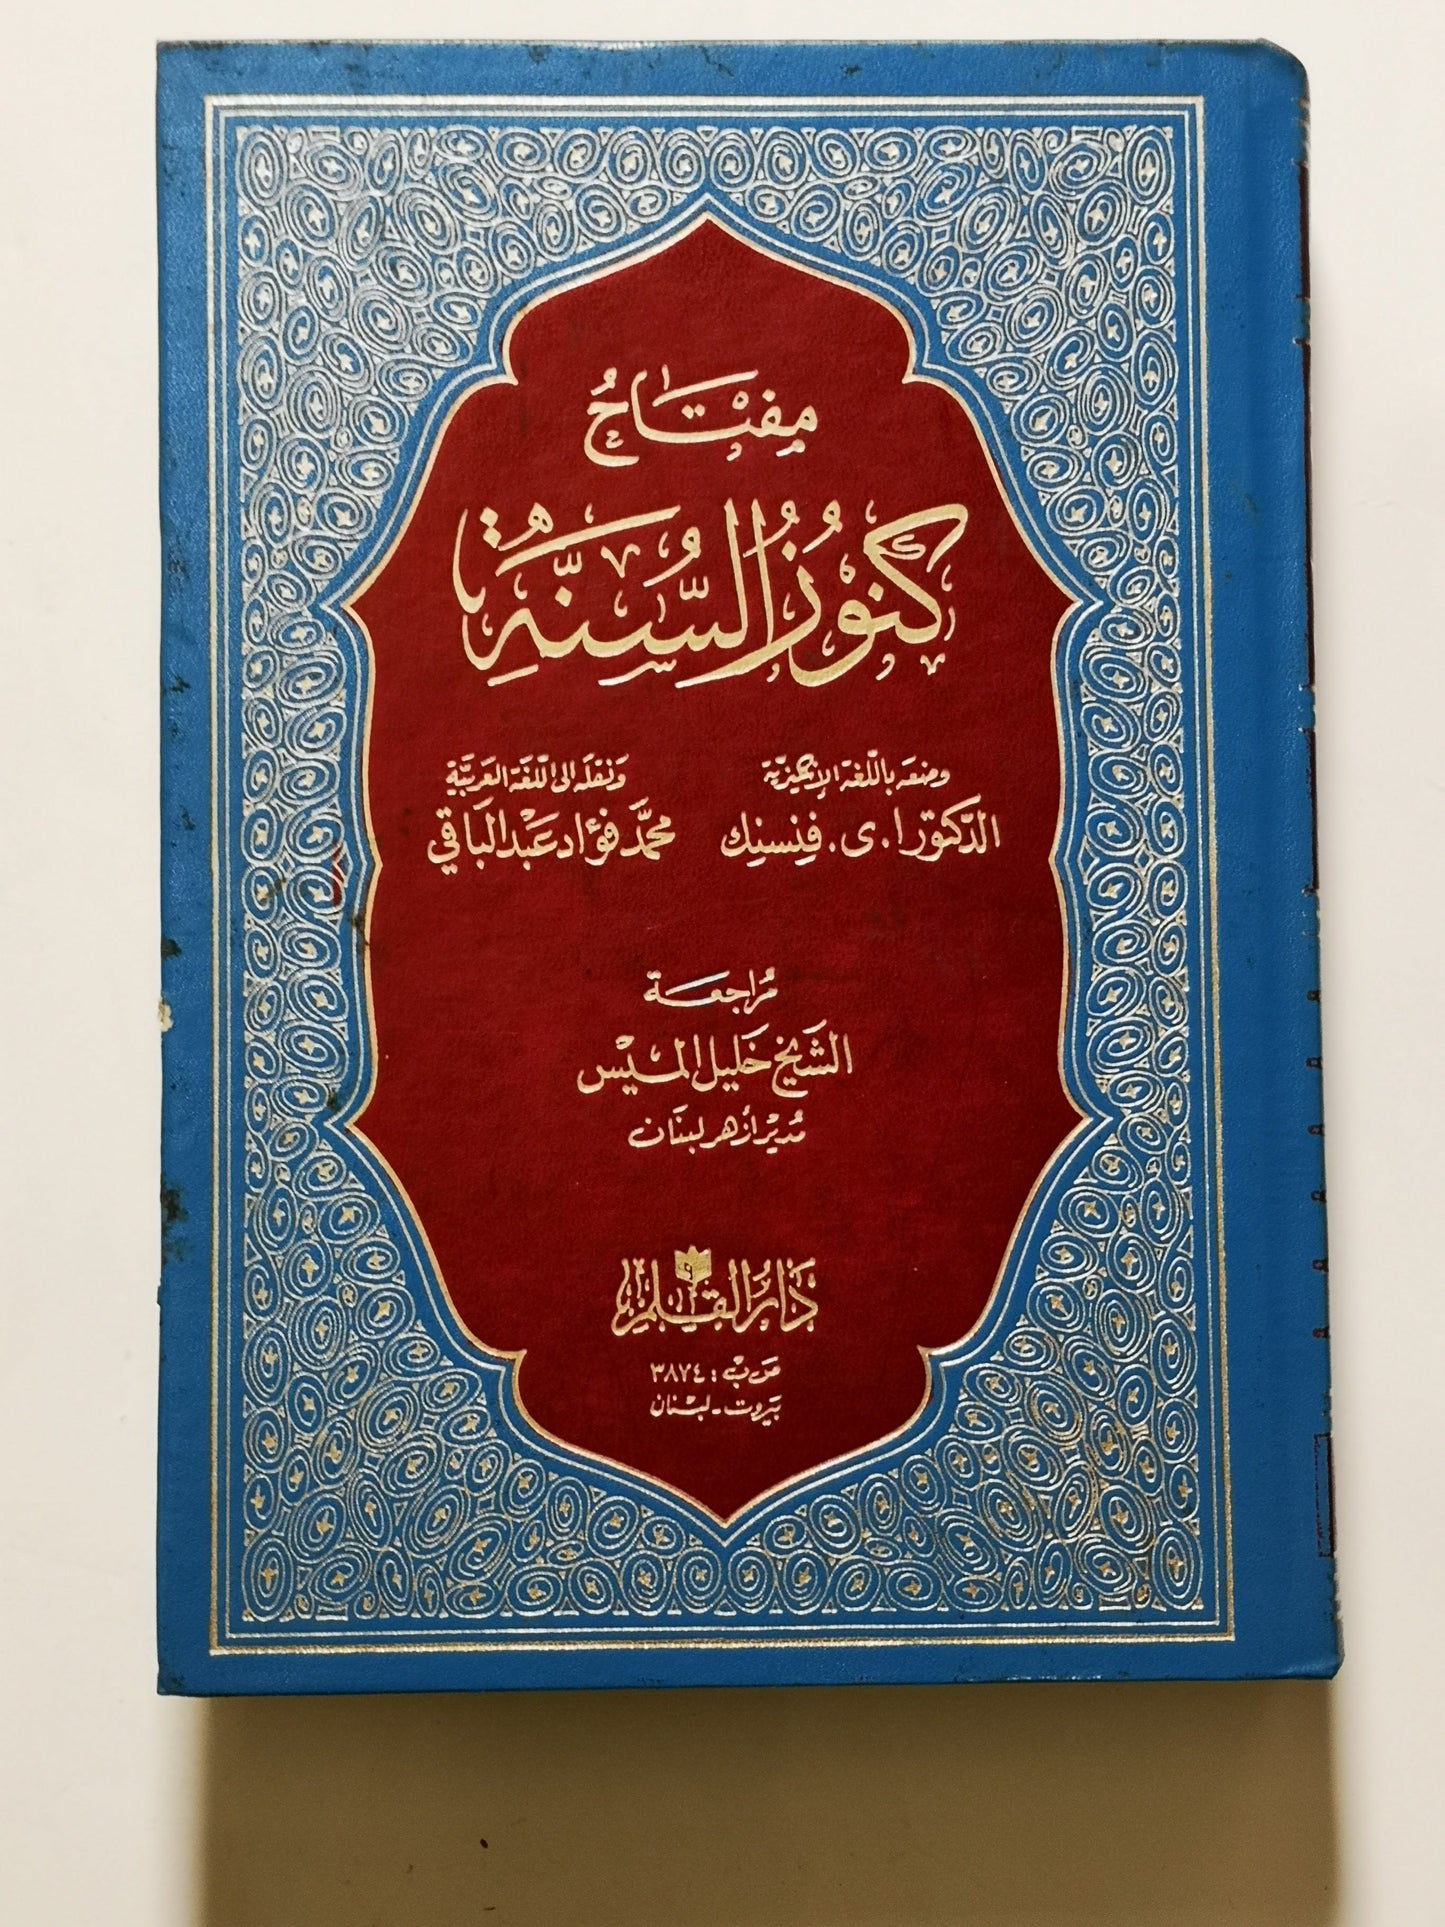 مفتاح
كنوز السنة
وضعه باللغة الإنجليزية
الدكتور ا. ى. فنسنك
ونقله الى اللغة العربية
محمد فؤاد عبد الباقي
مراجعة
الشيخ خليل الميس
مدير أزهر لبنان
دار القلم
ص ب : ٣٨٧٤
بيروت - لبنان